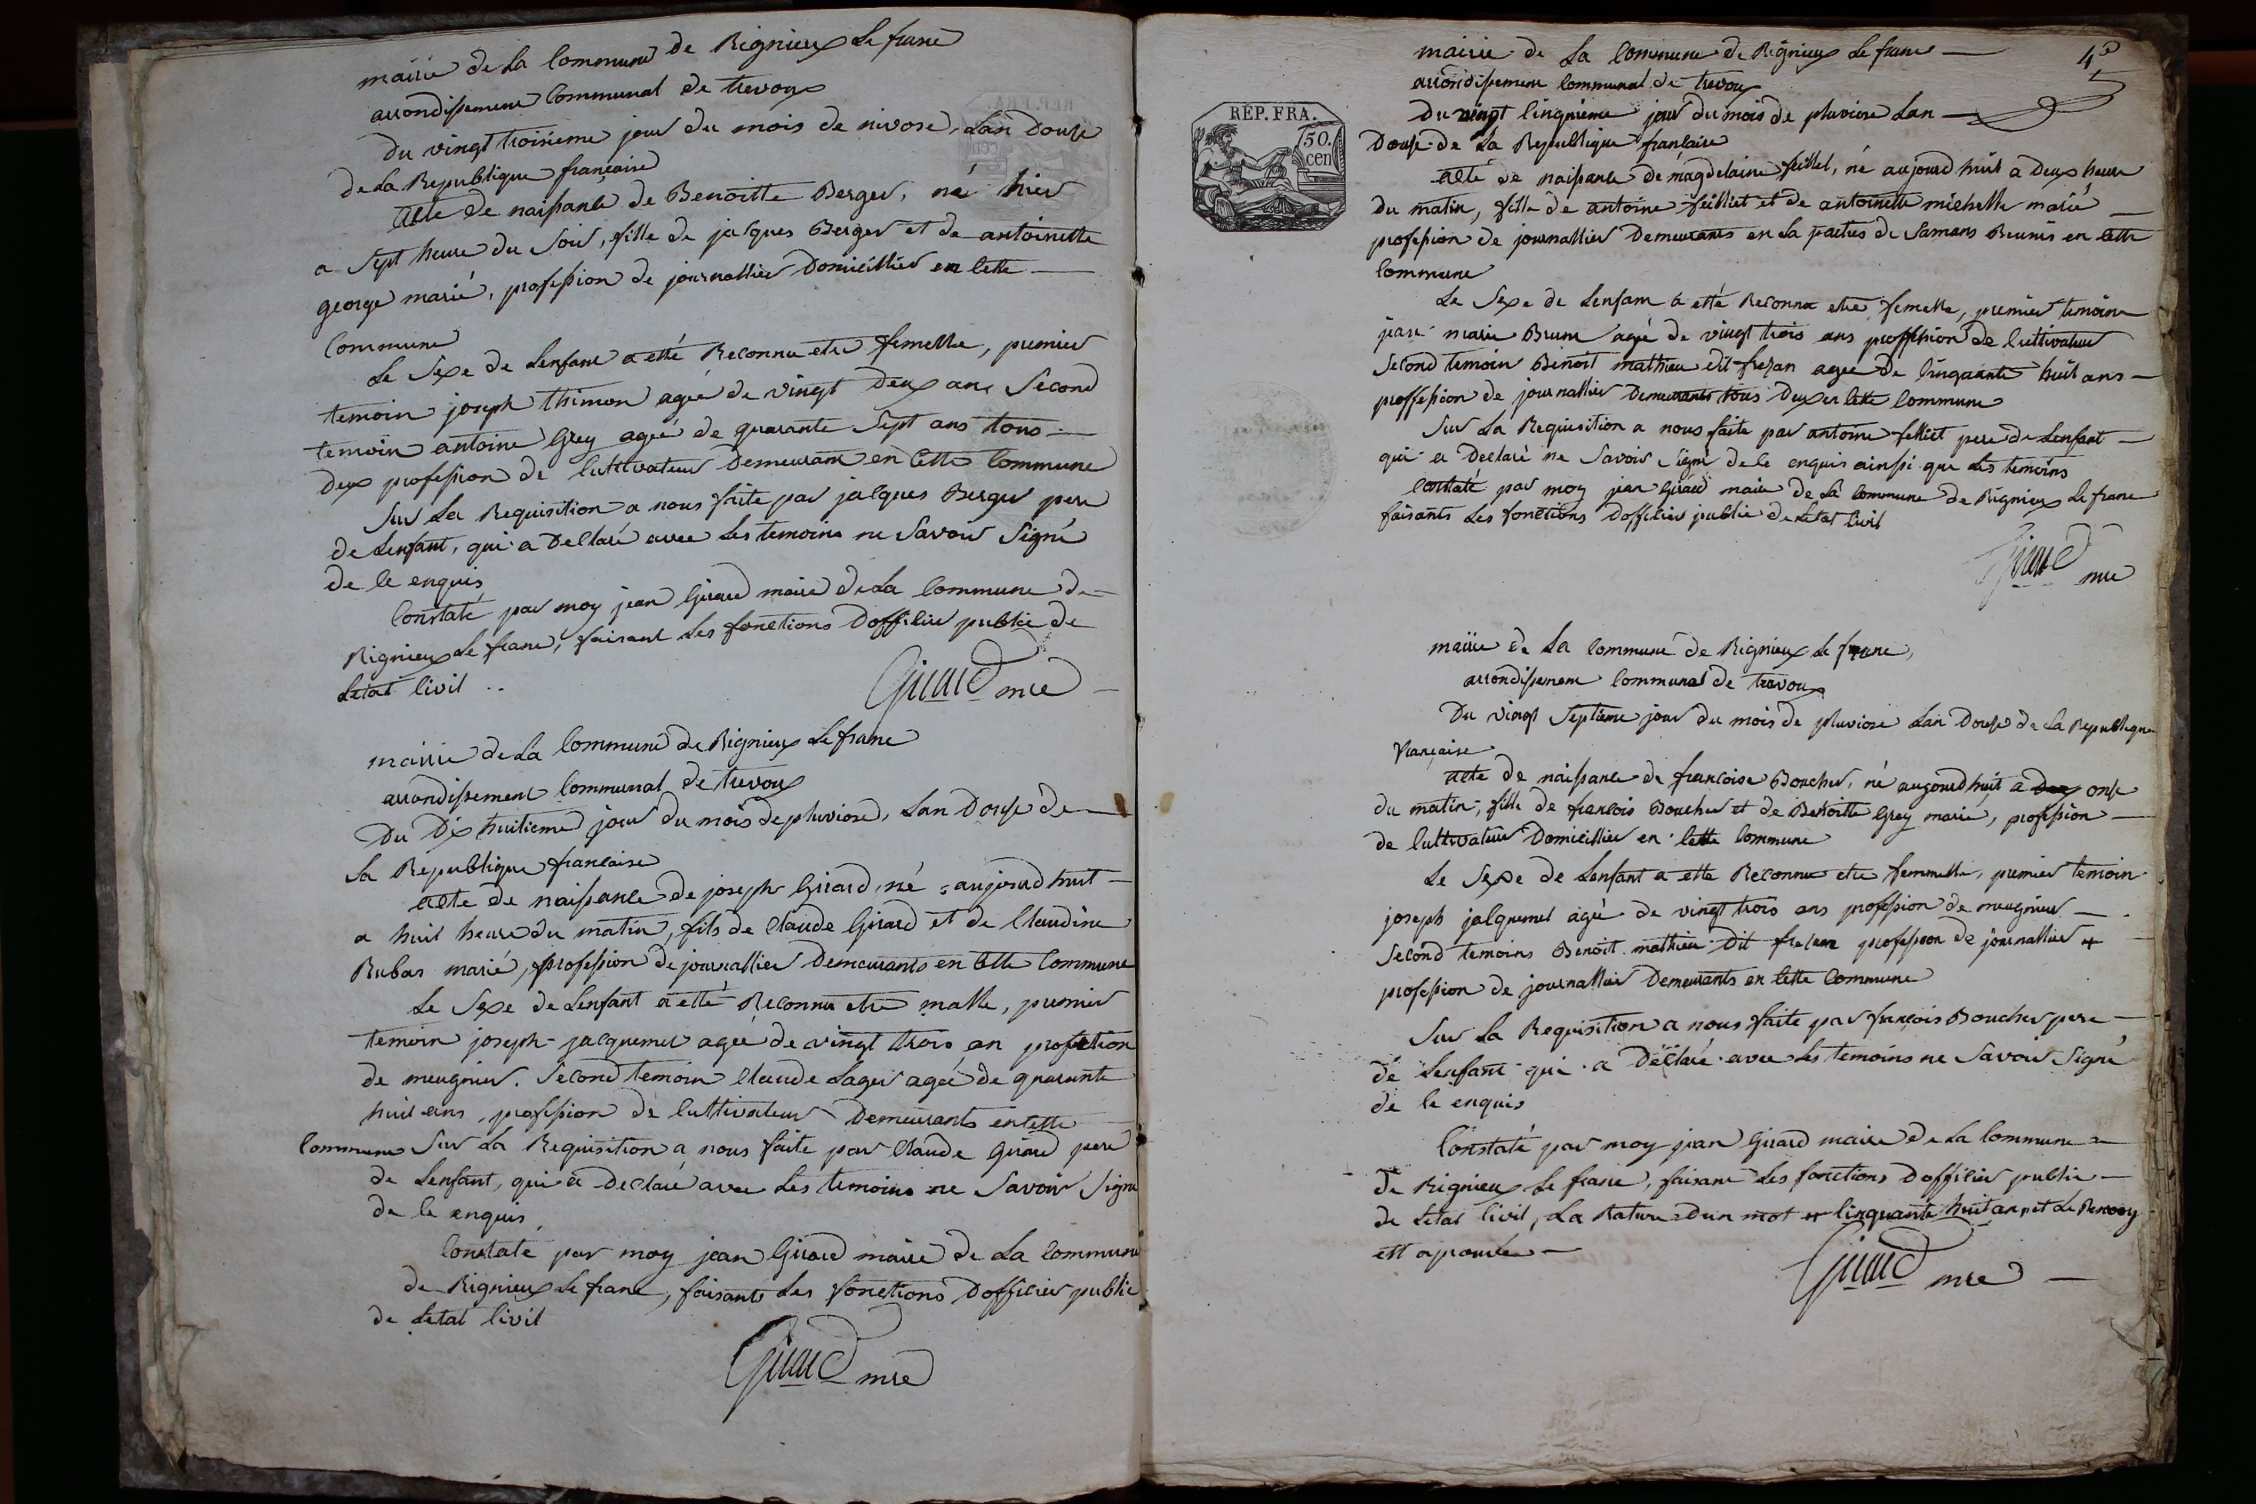 mairie de la Commune de Rignieux Le franc
arrondissement Communal de trevoux
Du vingt troisieme jour du mois de nivose, Lan Douse
de La Republique francaise
acte de naissance de Benoitte Berger, né hier
a sept heure du soir, fille de jacques Berger et de antoinette
george marié, profession de journallier Domicillier en cette
Commune
Le Sexe de Lenfant a etté Reconnu etre femelle, premier
temoin joseph thimon ageé de vingt Deux ans Second
temoin antoine Grey ageé de quarante Sept ans tous
Deux profession de Cultivateur Demeurant en Cette Commune
Sur La Requisition a nous faite par jacques Berger pere
de Lenfant, qui a Declaré avec Les temoins ne Savoir Signé
de Ce enquis
Constaté par moy jean Girard maire de La Commune de
Rignieux Le franc, faisant Les fonctions Dofficier public de
Letat Civil
Girard mre
mairie de La Commune de Rignieux Le franc
arrondissement Communal de trevoux
Du Dix huitieme jour du mois de pluviose, Lan Douse de
La Republique francaise
acte de naissance de joseph Girard, né aujourdhuit
a huit heure du matin, fils de Claude Girard et de Claudine
Rubas marié, profession de journallier Demeurants en Cette Commune
Le Sexe de Lenfant a etté Reconnu etre malle, premier
temoin joseph jacquemet ageé de vingt trois an profection
de meugnier. Second temoin Claude Lager ageé de quarante
huit ans, profession de Cultivateur Demeurants en Cette
Commune Sur La Requisition a nous faite par Claude Girard pere
de Lenfant, qui a Declaré avec Les temoins ne Savoir Signe
de Ce enquis,
Constate par moy jean Girard maire de La Commune
de Rignieux Le franc, faisants Les fonctions Dofficier public
de Letat Civil
Girard mre
4e
mairie de La Commune de Rignieux Le franc
arrondissement Communal de trevoux
Du vingt Cinquieme jour Du mois de pluviose Lan
REP. FRA.
50.
cen
Douse de La Republique francaise
acté de naissance de magdelaine feillet, né aujourdhuit a Deux heure
Du matin, fille de antoine feilliet et de antoinette michelle marié
profession de journallier Demeurants en La parties de Samans Reunis en Cette
Commune
Le Sexe de Lenfant a etté Reconnu etre femelle, premier temoin
jean marie Brun agé de vingt trois ans proffession de Cultivateur
Second temoin Benoit mathieu dit frejan ageé de Cinquante huit ans
proffession de journallier Demeurants tous Deux en Cette Commune
Sur La Requisition a nous faite par antoine felliet pere de Lenfant
qui a Declaré ne Savoir Signé de Ce enquis ainssi que Les temoins
Constaté par moy jean Girard maire de La Commune de Rignieux Le franc
faisants Les fonctions Dofficier public de Letat Civil
Girard mre
mairie de La Commune de Rignieux Le franc,
arrondissement Communal de trevoux
Du vingt Septieme jour Du mois de pluviose Lan Douse de La Republique
francaise
acte de naissance de francoise Boucher, né augourdhuit a deux onse
du matin, fille de francois Boucher et de Benoitte Grey marié, profession
de Cultivateur Domicillier en Cette Commune
Le Sexe de Lenfant a ette Reconnu etre femmelle, premier temoin
joseph jacquemet agé de vingt trois ans profession de meugnier
Second temoins Benoit mathieu Dit profession de journallier +
profession de journallier Demeurants en Cette Commune
Sur La Requisition a nous faite par francois Boucher pere
de Lenfant qui a Déclaré avec Les temoins ne Savoir Signé
de Ce enquis
Constaté par moy jean Girard maire de La Commune
de Rignieux Le franc, faisant Les fonctions Dofficier public
de Letat Civil, La Rature Dun mot et Cinquante huit an, et Le Renvoy
est aprouvée
Girard mre